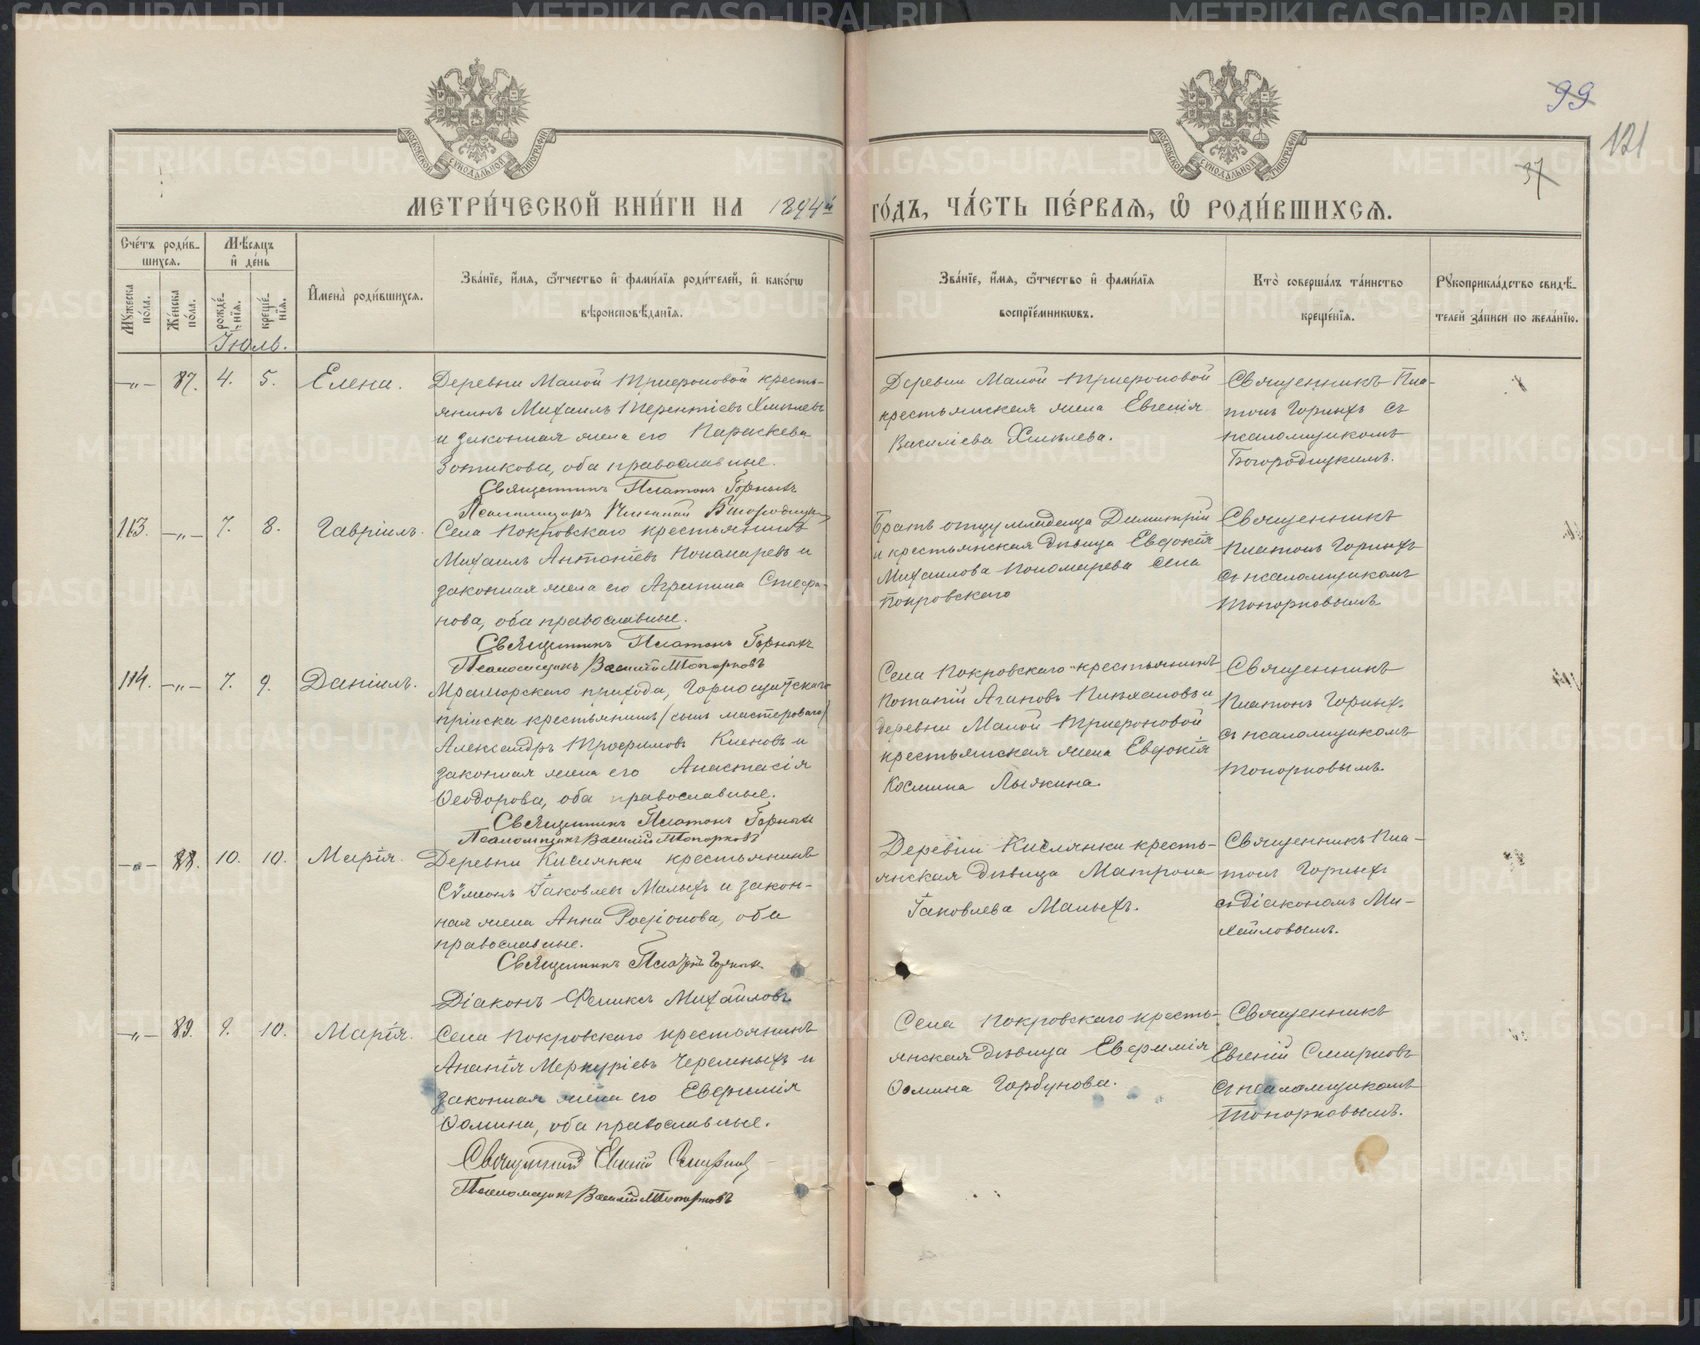 99
121
37
МЕТРИ́ЧЕСКОЙ КНИ́ГИ НА 1894й ГО́ДЪ, ЧА́СТЬ ПЕ́РВАЯ, Ѡ РОДИ́ВШИХСЯ.
МОСКОВСКОЙ СѴНОДАЛЬНОЙ ТИПОГРАФІИ
МОСКОВСКОЙ СѴНОДАЛЬНОЙ ТИПОГРАФІИ
Сче́тъ роди́в-
шихся.
Мꙋ́жеска по́ла.
Же́нска по́ла.
Мѣ́сяцъ
и҆ де́нь
рожде́-
нїя.
креще́-
нїя.
И҆мена̀ роди́вшихся.
Зва́нїе, и҆́мя, ѻ҆́тчество и҆ фами́лїя роди́телей, и҆ како́гѡ
вѣроисповѣ́данїя.
Зва́нїе, и҆́мя, ѻ҆́тчество и҆ фами́лїя
воспрїе́мникѡвъ.
Кто̀ соверша́лъ та́инство
креще́нїя.
Рꙋкоприкла́дство свидѣ́-
телей за́писи по жела́нїю.
Іюль.
—„— 87. 4. 5. Елена.
Деревни Малой Трифоновой кресть-
янинъ Михаилъ Терентіевъ Хмѣлевъ
и законная жена его Параскева
Зотикова, оба православные.
Священникъ Платонъ Горныхъ
Псаломщикъ Богородицкій
Деревни Малой Трифоновой
крестьянская жена Евгенія
Василіева Хмѣлева.
Священникъ Пла-
тонъ Горныхъ съ
псаломщикомъ
Богородицкимъ.
113. —„— 7. 8. Гавріилъ.
Села Покровскаго крестьянинъ
Михаилъ Антоніевъ Пономаревъ и
законная жена его Агрипина Стефа-
нова, оба православные.
Священникъ Платонъ Горныхъ
Псаломщикъ Василій Топорковъ
Братъ отцу младенца Димитрій
и крестьянская дѣвица Евдокія
Михаилова Пономарева села
Покровскаго
Священникъ
Платонъ Горныхъ
съ псаломщикомъ
Топорковымъ
114. —„— 7. 9. Даніилъ.
Мраморскаго прихода, Горнощитскаго
пріиска крестьянинъ (сынъ мастероваго)
Александръ Трофимовъ Кленовъ и
законная жена его Анастасія
Ѳеодорова, оба православные.
Священникъ Платонъ Горныхъ
Псаломщикъ Василій Топорковъ
Села Покровскаго крестьянинъ
Потапій Агаповъ и
деревни Малой Трифоновой
крестьянская жена Евдокія
Космина Лыжина.
Священникъ
Платонъ Горныхъ
съ псаломщикомъ
Топорковымъ.
—„— 88. 10. 10. Марія.
Деревни Кислянки крестьянинъ
Сѵмеонъ Іаковлевъ Малыхъ и закон-
ная жена Анна Родіонова, оба
православные.
Священникъ Платонъ Горныхъ
Діаконъ Феликсъ Михайловъ
Деревни Кислянки кресть-
янская дѣвица Матрона
Іаковлева Малыхъ.
Священникъ Пла-
тонъ Горныхъ
съ діакономъ Ми-
хайловымъ.
—„— 89. 9. 10. Марія.
Села Покровскаго крестьянинъ
Ананія Меркуріевъ Черемныхъ и
законная жена его Евфимія
Ѳомина, оба православные.
Священникъ Евгеній Смирновъ
Псаломщикъ Василій Топорковъ
Села Покровскаго кресть-
янская дѣвица Евфимія
Ѳомина Горбунова.
Священникъ
Евгеній Смирновъ
съ псаломщикомъ
Топорковымъ.
METRIKI.GASO-URAL.RU